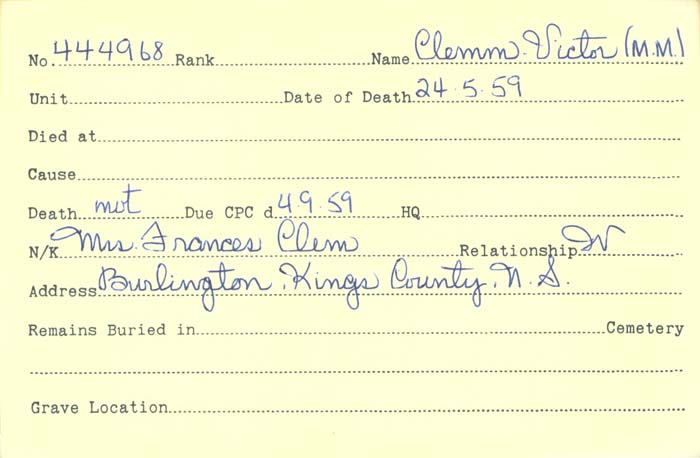 No. 444968 Rank Name Clemm. Victor (M.M.)
Unit Date of Death 24.5.59
Died at
Cause
Death not Due CPC d 4.9.59 HQ
N/K Mrs. Frances Clem Relationship W
Address Burlington, Kings County, N.S.
Remains Buried in Cemetery
Grave Location